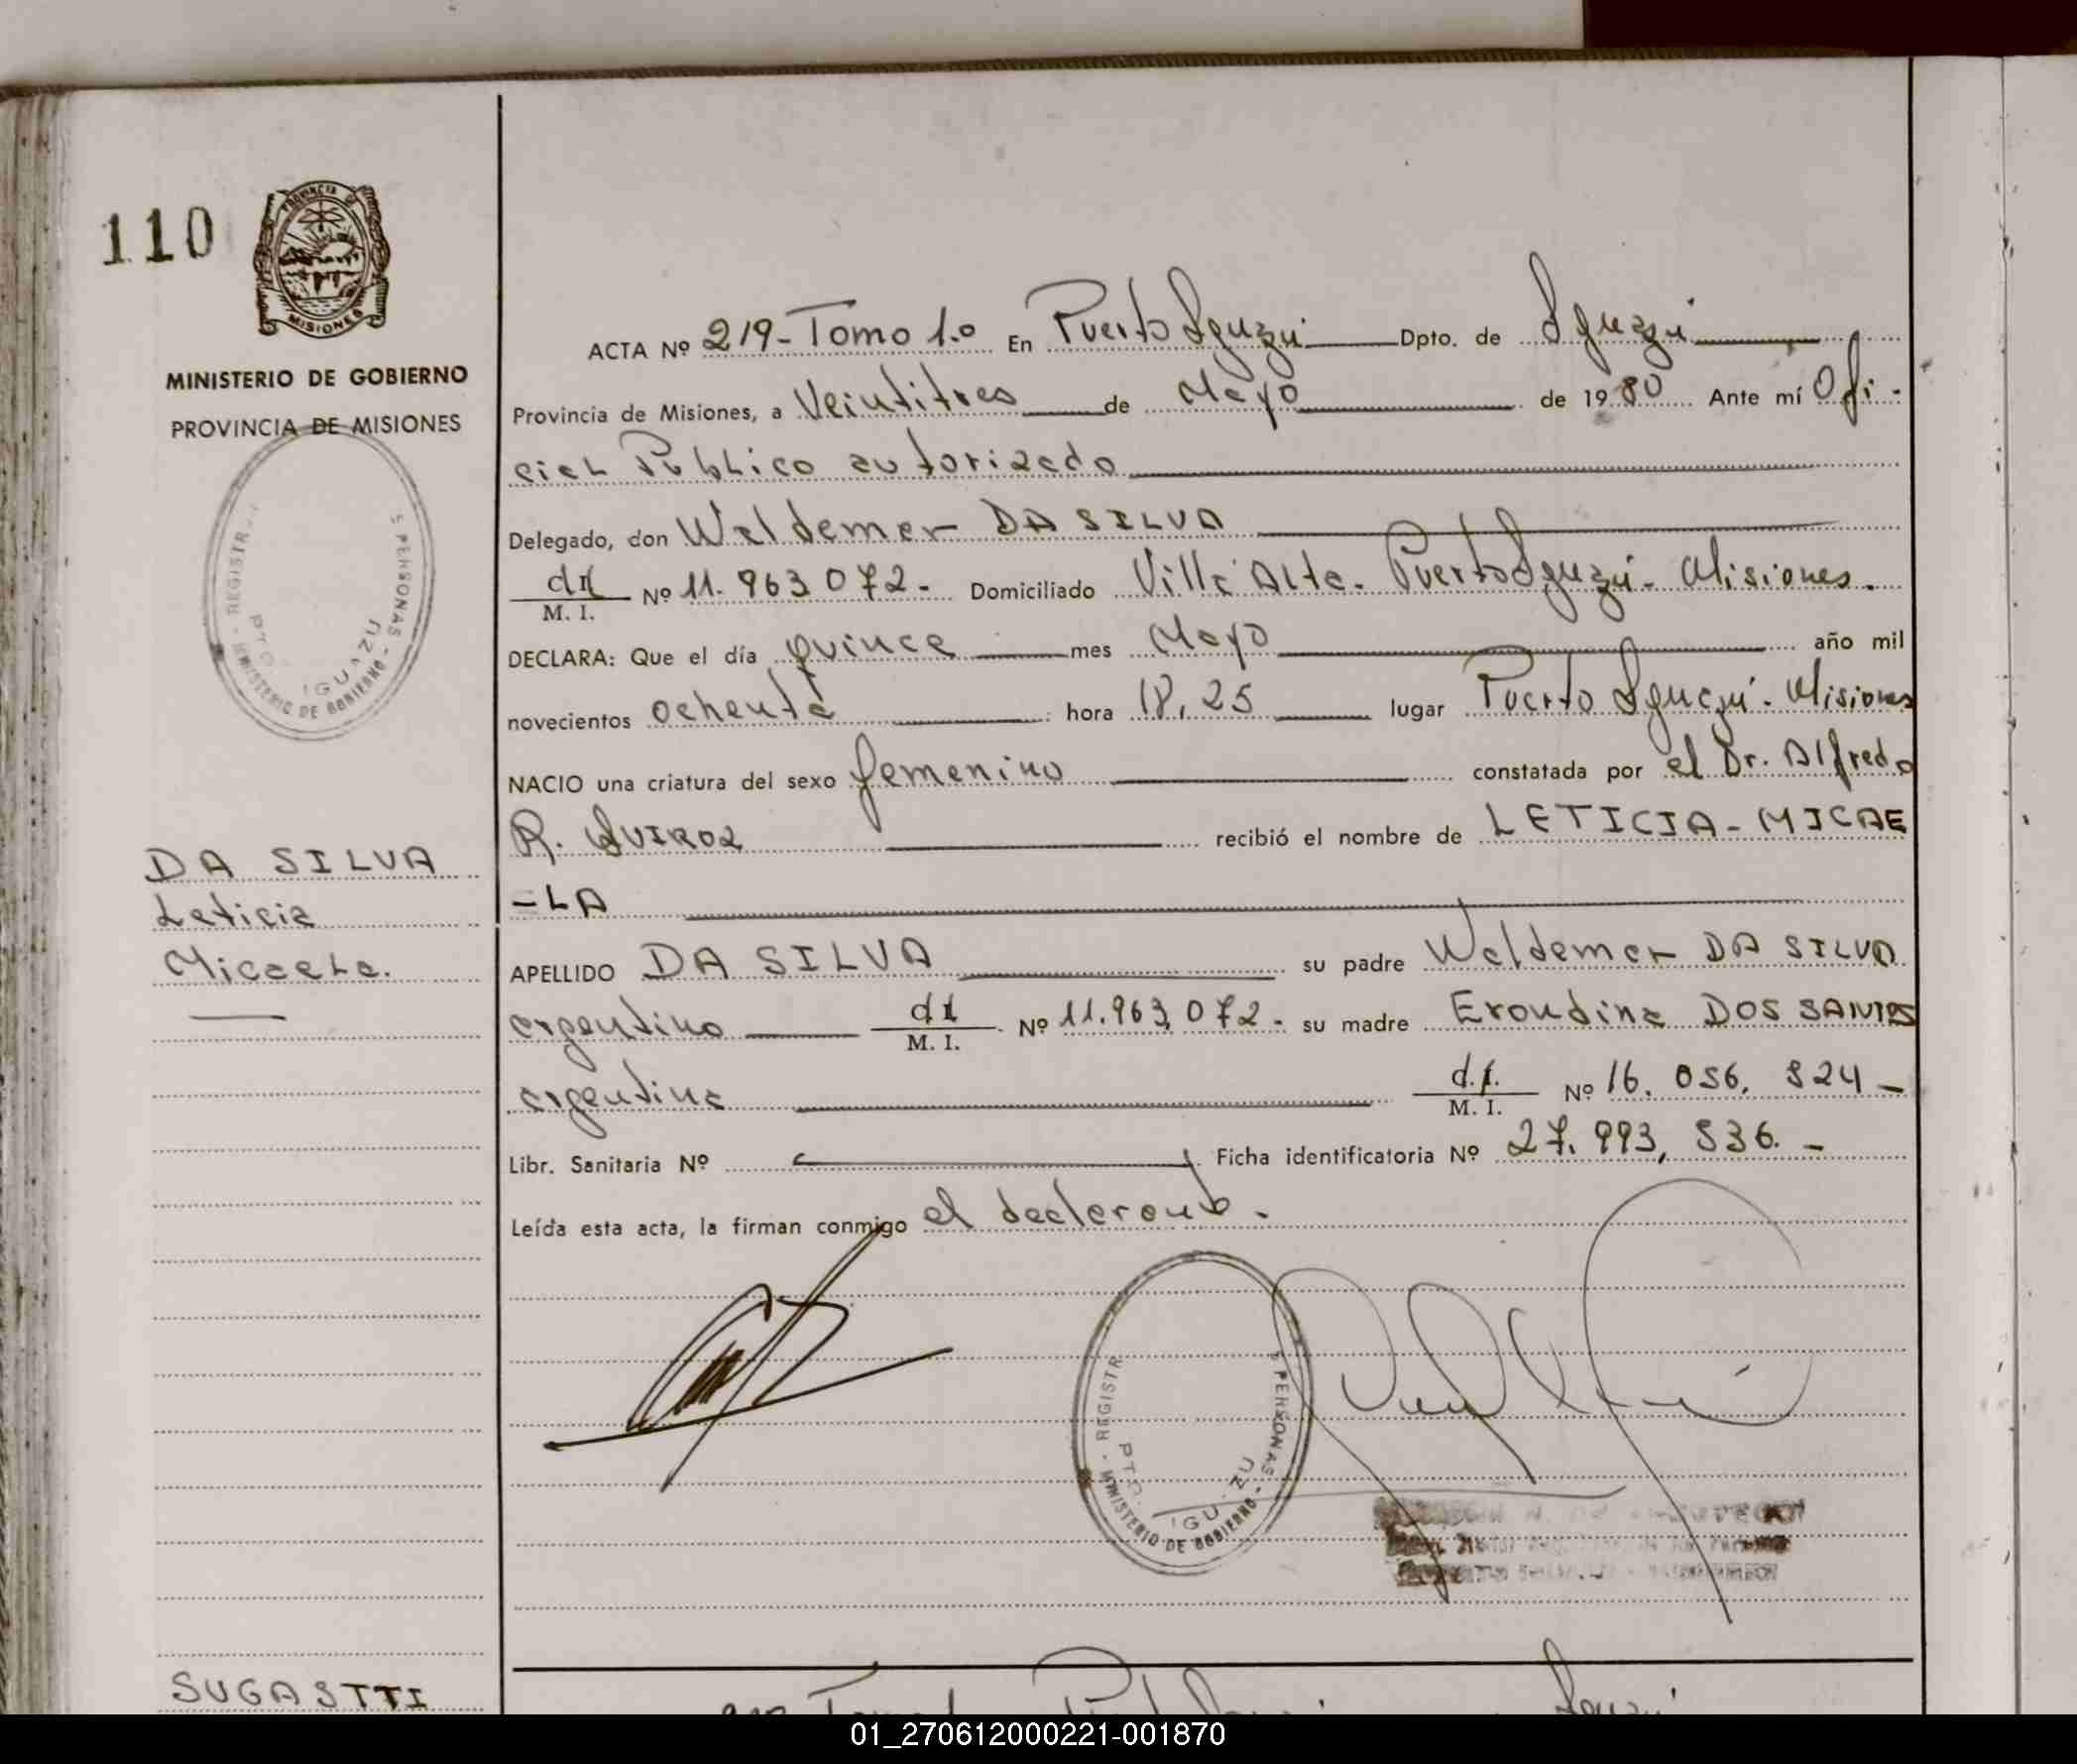 110
PROVINCIA DE
MISIONES
MINISTERIO DE GOBIERNO
PROVINCIA DE MISIONES
REGISTR
S PERSONAS
PTO.
IGUAZU
MINISTERIO DE GOBIERNO
DA SILVA
Leticia
Micaela.
ACTA Nº 219-Tomo 1.o En Puerto Iguazú Dpto. de Iguazú
Provincia de Misiones, a Veintitres de Mayo de 1980 Ante mí Ofi-
cial Publico autorizado
Delegado, don Waldemar DA SILVA
M. I. Nº 11.963.072- Domiciliado Villa Alta- Puerto Iguazú- Misiones.
DECLARA: Que el día quince mes Mayo año mil
novecientos ochenta hora 18,25 lugar Puerto Iguazú- Misiones
NACIO una criatura del sexo femenino constatada por el Dr. Alfredo
R. QUIROZ recibió el nombre de LETICIA-MICAE
-LA
APELLIDO DA SILVA su padre Waldemar DA SILVA
argentino M. I. Nº 11.963,072- su madre Erondina DOS SANTOS
argentina M. I. Nº 16.056.824-
Libr. Sanitaria Nº Ficha identificatoria Nº 27.993,836.-
Leída esta acta, la firman conmigo el declarante.
REGISTR
S PERSONAS
PTO.
IGUAZU
MINISTERIO DE GOBIERNO
SUGASTTI
01_270612000221-001870